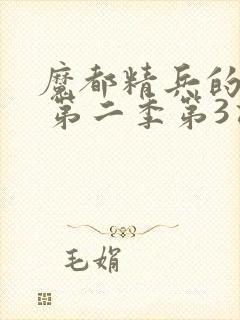 魔都精兵的
第二季第3
毛娟